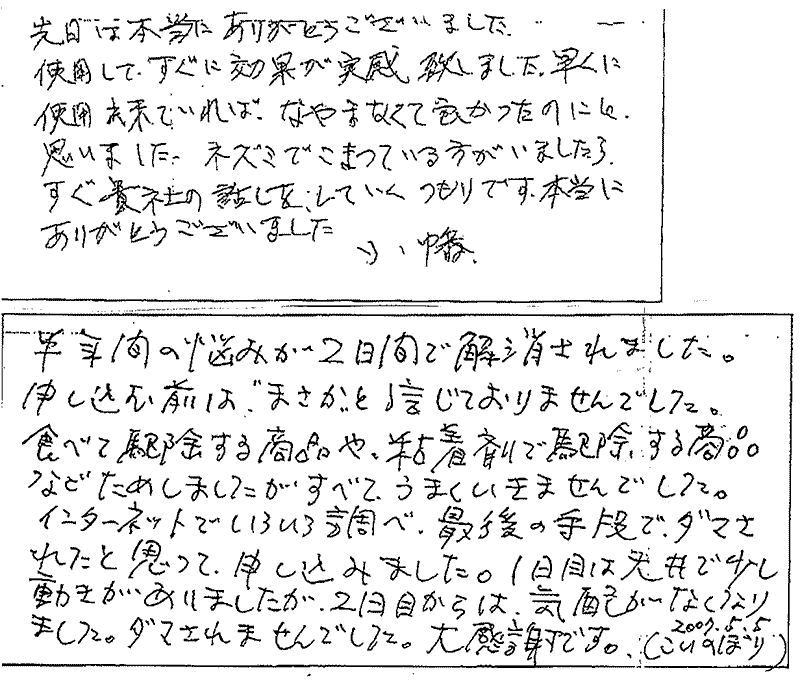 先日は本当にありがとうございました.
使用して、すぐに効果が実感致しました。早くに
使用出来ていれば、なやまなくて良かったのにと、
思いました。ネズミでこまっている方がいましたら、
すぐ貴社の話しを、していくつもりです。本当に
ありがとうございました
半年間の悩みが2日間で解消されました。
申し込む前は、"まさか"と信じておりませんでした。
食べて駆除する商品や、粘着剤で駆除する商品
などためしましたがすべて、うまくいきませんでした。
インターネットでいろいろ調べ、最後の手段で、ダマさ
れたと思って、申し込みました。1日目は天井で少し
動きがありましたが、2日目からは、気配がなくなり
ました。ダマされませんでした。大感謝です。
2007.5.5
(こいのぼり)